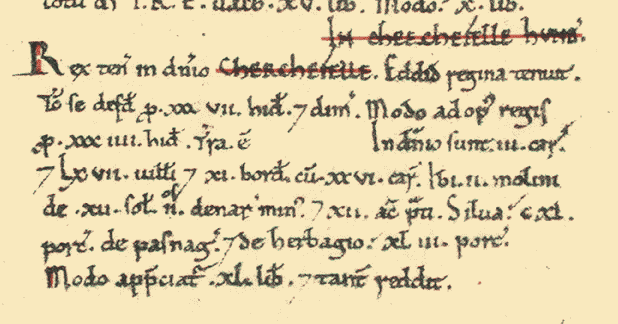 totu dī T.R.E. ualb̄. xv. lib̄. Modo. x. lib̄.
In Cherchefelle Hund̄.
Rex ten̄ in dn̄io Cherchefelle. Eddid regina tenuit.
T̄c se defd̄ p̱. xxxvii. hid̄. ⁊ dim̄. Modo ad op̄ regis
p̱. xxxiiii. hid̄. T̄ra. ē In dn̄io sunt. iii. car̄.
⁊ Lxvii. uilłi ⁊ xi. bord̄. cū. xxvi. car̄. Ibi. ii. molini
de .xii. sol̄. ii. denar̄ min̄. ⁊ xii. ac̄ p̄ti. Silua. c xl.
porc̄. de pasnaḡ. ⁊ de herbagio. xl iii. porc̄.
Modo app̄ciat̄. xl. lib̄. ⁊ tant̄ reddit.